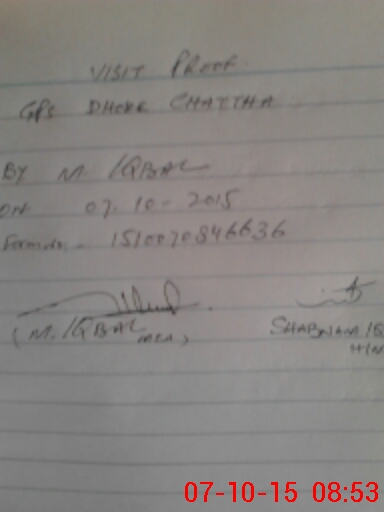 VISIT PROOF
GPS DHOKE CHATTHA
BY M. IQBAL
ON 07-10-2015
1510070846636
(M. IQBAL MEA)
SHABNAM IQ
07-10-15 08:53